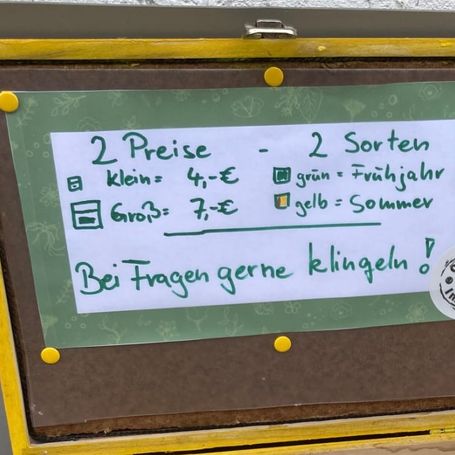 2 Preise - 2 Sorten
klein= 4,-€ grün = Frühjahr
Groß= 7,-€ gelb = Sommer
Bei Fragen gerne klingeln!